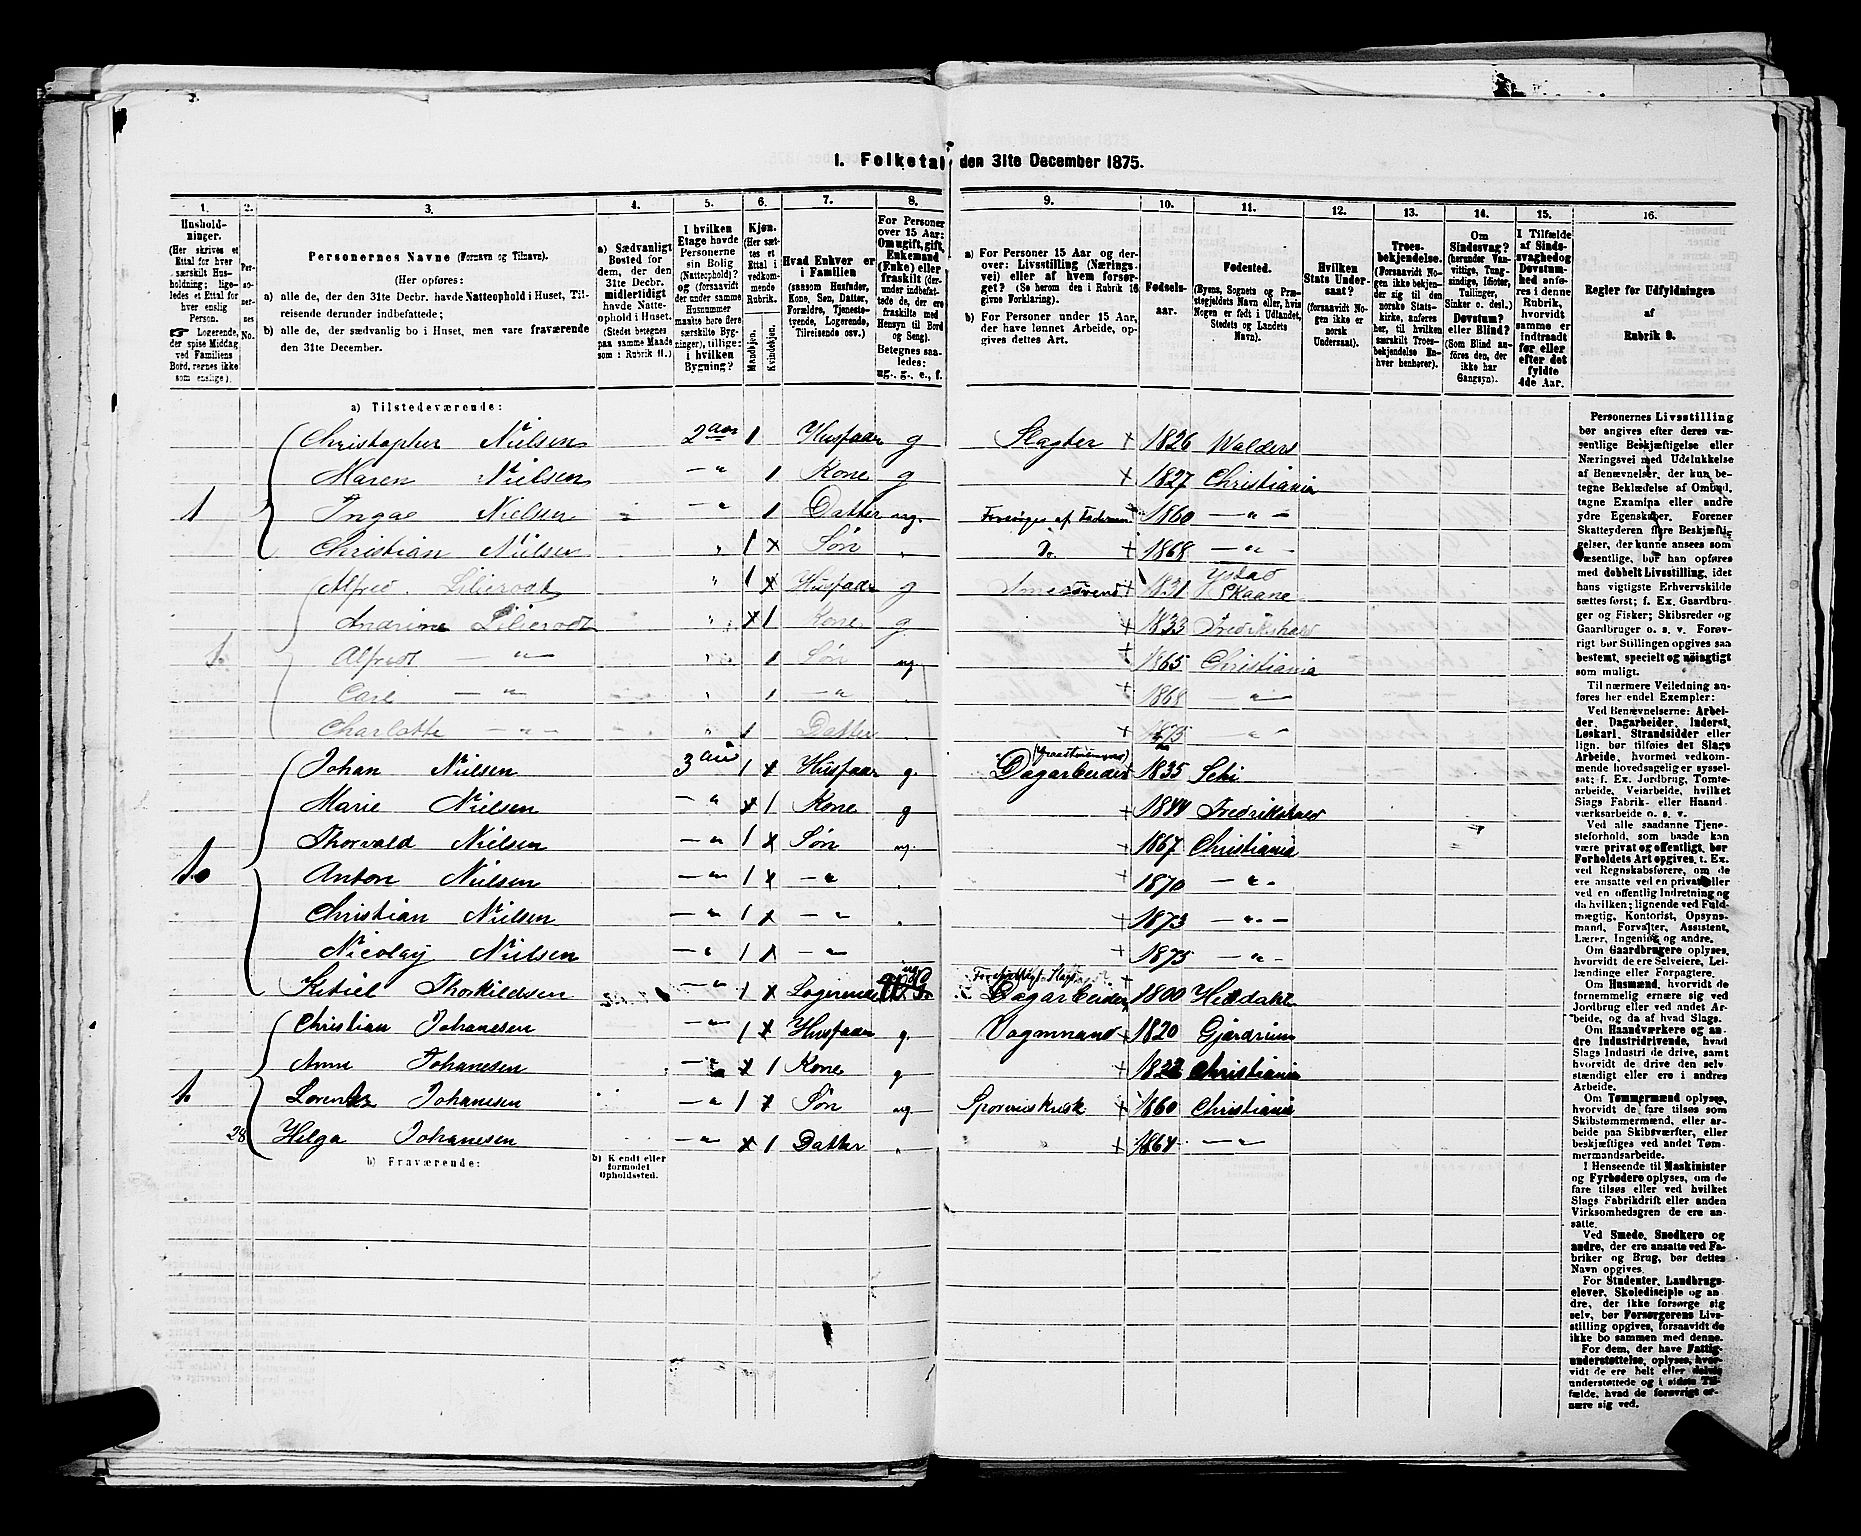 1. Folketal den 31te December 1875.
1. 2. 3. 4. 5. 6. 7. 8. 9. 10. 11. 12. 13. 14. 15. 16.
Hushold-
ninger.
(Her skrives et
Ettal for hver
særskilt Hus-
holdning; lige-
ledes et Ettal for
hver enslig
Person.
☞ Logerende,
der spise Middag
ved Familiens
Bord, regnes ikke
som enslige).
Personernes No.
Personernes Navne (Fornavn og Tilnavn).
(Her opføres:
a) alle de, der den 31te Decbr. havde Natteophold i Huset, Til-
reisende derunder indbefattede;
b) alle de, der sædvanlig bo i Huset, men vare fraværende
den 31te December.
a) Sædvanligt
Bosted for
dem, der den
31te Decbr.
midlertidigt
havde Natte-
ophold i Huset.
(Stedet betegnes
paa samme Maade
som i Rubrik 11.)
I hvilken
Etage havde
Personerne
sin Bolig
(Natteophold)?
og (forsaavidt
der under samme
Husnummer
maatte høre flere
særskilte Byg-
ninger), tillige:
i hvilken
Bygning?
Kjøn.
(Her sæt-
tes et
Ettal i
vedkom-
mende
Rubrik.
Mandkjøn.
Kvindekjøn.
Hvad Enhver er
i Familien
(saasom Husfader,
Kone, Søn, Datter,
Forældre, Tjeneste-
tyende, Logerende,
Tilreisende osv.)
For Personer
over 15 Aar:
Om ugift, gift,
Enkemand
(Enke) eller
fraskilt (der-
under indbefat-
tede de, der ere
fraskilte med
Hensyn til Bord
og Seng).
Betegnes saa-
ledes:
ug., g., e., f.
a) For Personer 15 Aar og der-
over: Livsstilling (Nærings-
vei) eller af hvem forsør-
get? (Se herom den i Rubrik 16
givne Forklaring).
b) For Personer under 15 Aar,
der have lønnet Arbeide, op-
gives dettes Art.
Fødsels-
aar.
Fødested.
(Byens, Sognets og Præ-
stegjeldets Navn eller, hvis
Nogen er født i Udlandet,
Stedets og Landets
Navn).
Hvilken
Stats Under-
saat?
(forsaavidt No-
gen ikke er
norsk
Undersaat).
Troes-
bekjendelse.
(Forsaavidt No-
gen ikke bekjen-
der sig til den
norske Stats-
kirke, anføres
her, til hvilken
særskilt Troes-
bekjendelse En-
hver henhører).
Om
Sindssvag?
(herunder Van-
vittige, Tung-
sindige, Idioter,
Tullinger,
Sinker o. desl.)
Døvstum?
eller Blind?
(Som Blind an-
føres den, der
ikke har
Gangsyn).
I Tilfælde
af Sinds-
svaghed og
Døvstum-
hed anfø-
res i denne
Rubrik,
hvorvidt
samme er
indtraadt
før eller
efter det
fyldte
4de Aar.
Regler for Udfyldningen
af
Rubrik 9.
a) Tilstedeværende:
Christopher Nielsen 2 1 Husfader g Slagter + 1826 Walders
Maren Nielsen — " 1 Kone g + 1827 Christiania
1 Ingae Nielsen — " 1 Datter ug. Forsørges af Faderen 1860 — " —
Christian Nielsen " 1 x Søn " Do + 1868 — " —
Alfred Liliervot " 1 x Husfader g + 1831 Ystad Skaane
Liliervot " x 1 Kone g + 1833 Fredrikshald
1. Alfred — " — 1 Søn ug + 1865 Christiania
Carl — " — " 1 — " + 1868 — " —
Charlotte — " — " 1 Datter + — " —
Johan Nielsen 3 1 x Husfader g. Dagarbeider 1835 Schi
Marie Nielsen — " x 1 Kone g + 1844 Fredrikshald
Thorvald Nielsen — " 1 x Søn ug. + 1867 Christiania
1. Anton Nielsen — " 1 x — " . + 1870 — " —
Christian Nielsen — " 1 x — " . + 1873 — " —
Nicolay Nielsen — " 1 x — " + 1875 — " —
Ketiel Thorkildsen — " 1 x Logerende Dagarbeider 1800 Hiddahl
Christian Johanesen — " 1 x Husfader g. Vognmand + 1820 Gjerdrum
Anne Johanesen — " x 1 Kone g + Christiania
1. Lorents Johanesen — " 1 x Søn ug + 1860 Christiania
28 Helga Johanesen — " x 1 Datter " + 1864 — "
b) Fraværende:
b) Kjendt eller
formodet
Opholdssted.
Personernes Livsstilling
bør angives efter deres væ-
sentlige Beskjæftigelse eller
Næringsvei med Udelukkelse
af Benævnelser, der kun be-
tegne Beklædelse af Ombud,
tagne Examina eller andre
ydre Egenskaber. Forener
Skatteyderen flere Beskjæfti-
gelser, der kunne ansees som
væsentlige, bør han opføres
med dobbelt Livsstilling, idet
hans vigtigste Erhvervskilde
sættes først; f. Ex. Gaardbru-
ger og Fisker; Skibsreder og
Gaardbruger o. s. v. Forøv-
rigt bør Stillingen opgives saa
bestemt, specielt og nøiagtigt
som muligt.
Til nærmere Veiledning an-
føres her endel Exempler:
Ved Benævnelserne: Arbei-
der, Dagarbeider, Inderst,
Løskarl, Strandsidder eller
lign. bør tilføies det Slags
Arbeide, hvormed vedkom-
mende hovedsagelig er syssel-
sat; f. Ex. Jordbrug, Tomte-
arbeide, Veiarbeide, hvilket
Slags Fabrik- eller Haand-
værksarbeide o. s. v.
Ved alle saadanne Tjene-
steforhold, som baade kan
være privat og offentligt, bør
Forholdets Art opgives, t. Ex.
ved Regnskabsførere, om de
ere ansatte ved en privat eller
ved en offentlig Indretning og
da hvilken; lignende ved Fuld-
mægtig, Kontorist, Opsyns-
mand, Forvalter, Assistent,
Lærer, Ingeniør og andre.
Om Gaardbrugere oplyses,
hvorvidt de ere Selveiere, Lei-
lændinge eller Forpagtere.
Om Husmænd, hvorvidt de
fornemmelig ernære sig ved
Jordbrug eller ved andet Ar-
beide, og da af hvad Slags.
Om Haandværkere og an-
dre Industridrivende, hvad
Slags Industri de drive, samt
hvorvidt de drive den selv-
stændigt eller ere i andres
Arbeide.
Om Tømmermænd oplyses,
hvorvidt de fare tilsøs som
Skibstømmermænd, eller ar-
beide paa Skibsværfter, eller
beskjæftiges ved andet Tøm-
mermandsarbeide.
I Henseende til Maskinister
og Fyrbødere oplyses, om de
fare tilsøs eller ved hvilket
Slags Fabrikdrift eller anden
Virksomhedsgren de ere an-
satte.
Ved Smede, Snedkere og
andre, der ere ansatte ved Fa-
briker og Brug, bør dettes
Navn opgives.
For Studenter, Landbrugs-
elever, Skoledisciple og an-
dre, der ikke forsørge sig
selv, bør Forsørgerens Livs-
stilling opgives, forsaavidt de
ikke bo sammen med denne.
For dem, der have Fattig-
understøttelse, oplyses, hvor-
vidt de ere helt eller delvis
understøttede og i sidste Til-
fælde, hvad de forøvrigt er-
nære sig ved.